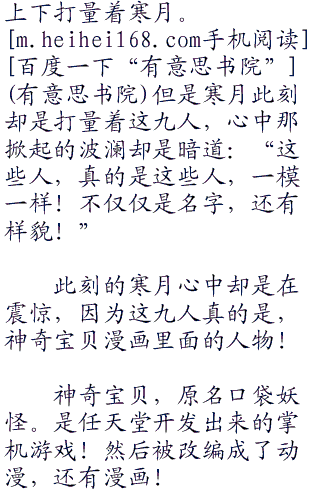 上下打量着寒月。
[m.heihei168.com手机阅读]
[百度一下“有意思书院”]
(有意思书院)但是寒月此刻
却是打量着这九人，心中那
掀起的波澜却是暗道：“这
些人，真的是这些人，一模
一样！不仅仅是名字，还有
样貌！”
此刻的寒月心中却是在
震惊，因为这九人真的是，
神奇宝贝漫画里面的人物！
神奇宝贝，原名口袋妖
怪。是任天堂开发出来的掌
机游戏！然后被改编成了动
漫，还有漫画！